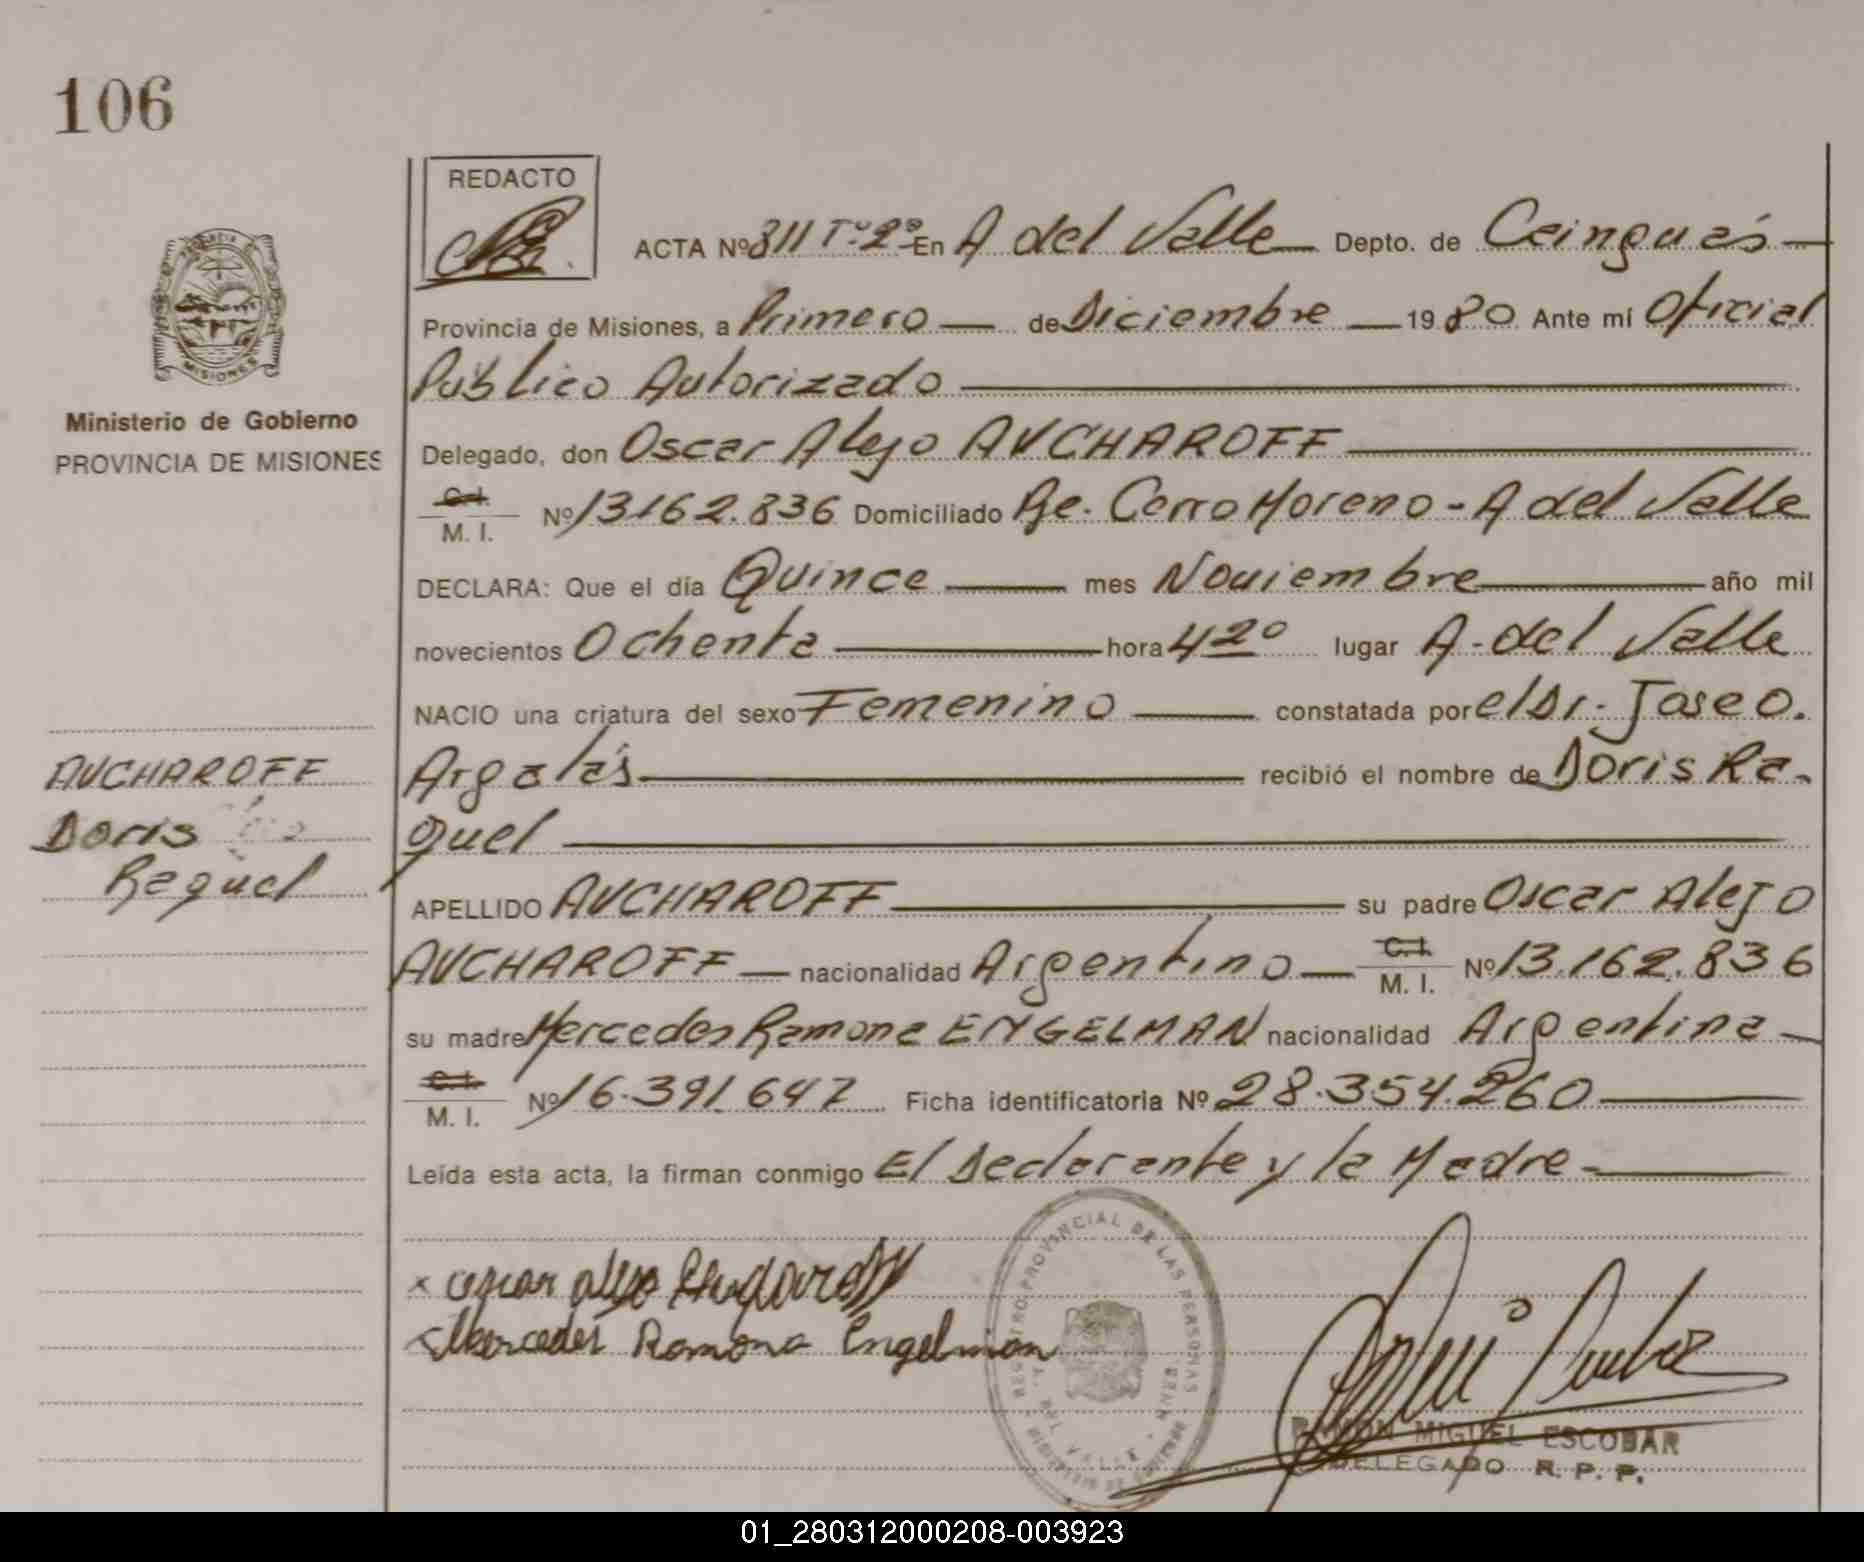 106
REDACTO
ACTA Nº 311 Tº 2º En A del Valle Depto. de Cainguás
Provincia de Misiones, a Primero de Diciembre 1980 Ante mí Oficial
Público Autorizado
Ministerio de Gobierno
PROVINCIA DE MISIONES
Delegado, don Oscar Alejo AVCHAROFF
C.I.
M. I. Nº 13.162.836 Domiciliado Pje. Cerro Moreno - A del Valle
DECLARA: Que el día Quince mes Noviembre año mil
novecientos Ochenta hora 4 20 lugar A. del Valle
NACIO una criatura del sexo Femenino constatada por el Dr. Jose O.
Argalás recibió el nombre de Doris Ra-
quel
AVCHAROFF
Doris
Raquel
APELLIDO AVCHAROFF su padre Oscar Alejo
AVCHAROFF nacionalidad Argentino C.I. M. I. Nº 13.162.836
su madre Mercedes Ramona ENGELMAN nacionalidad Argentina
C.I.
M. I. Nº 16.391.647 Ficha identificatoria Nº 28.354.260
Leída esta acta, la firman conmigo El Declarante y la Madre
x oscar alejo
x Mercedes Ramona Engelman
REGISTRO PROVINCIAL DE LAS PERSONAS
DEL VALLE
RAMON MIGUEL ESCOBAR
DELEGADO R. P. P.
01_280312000208-003923